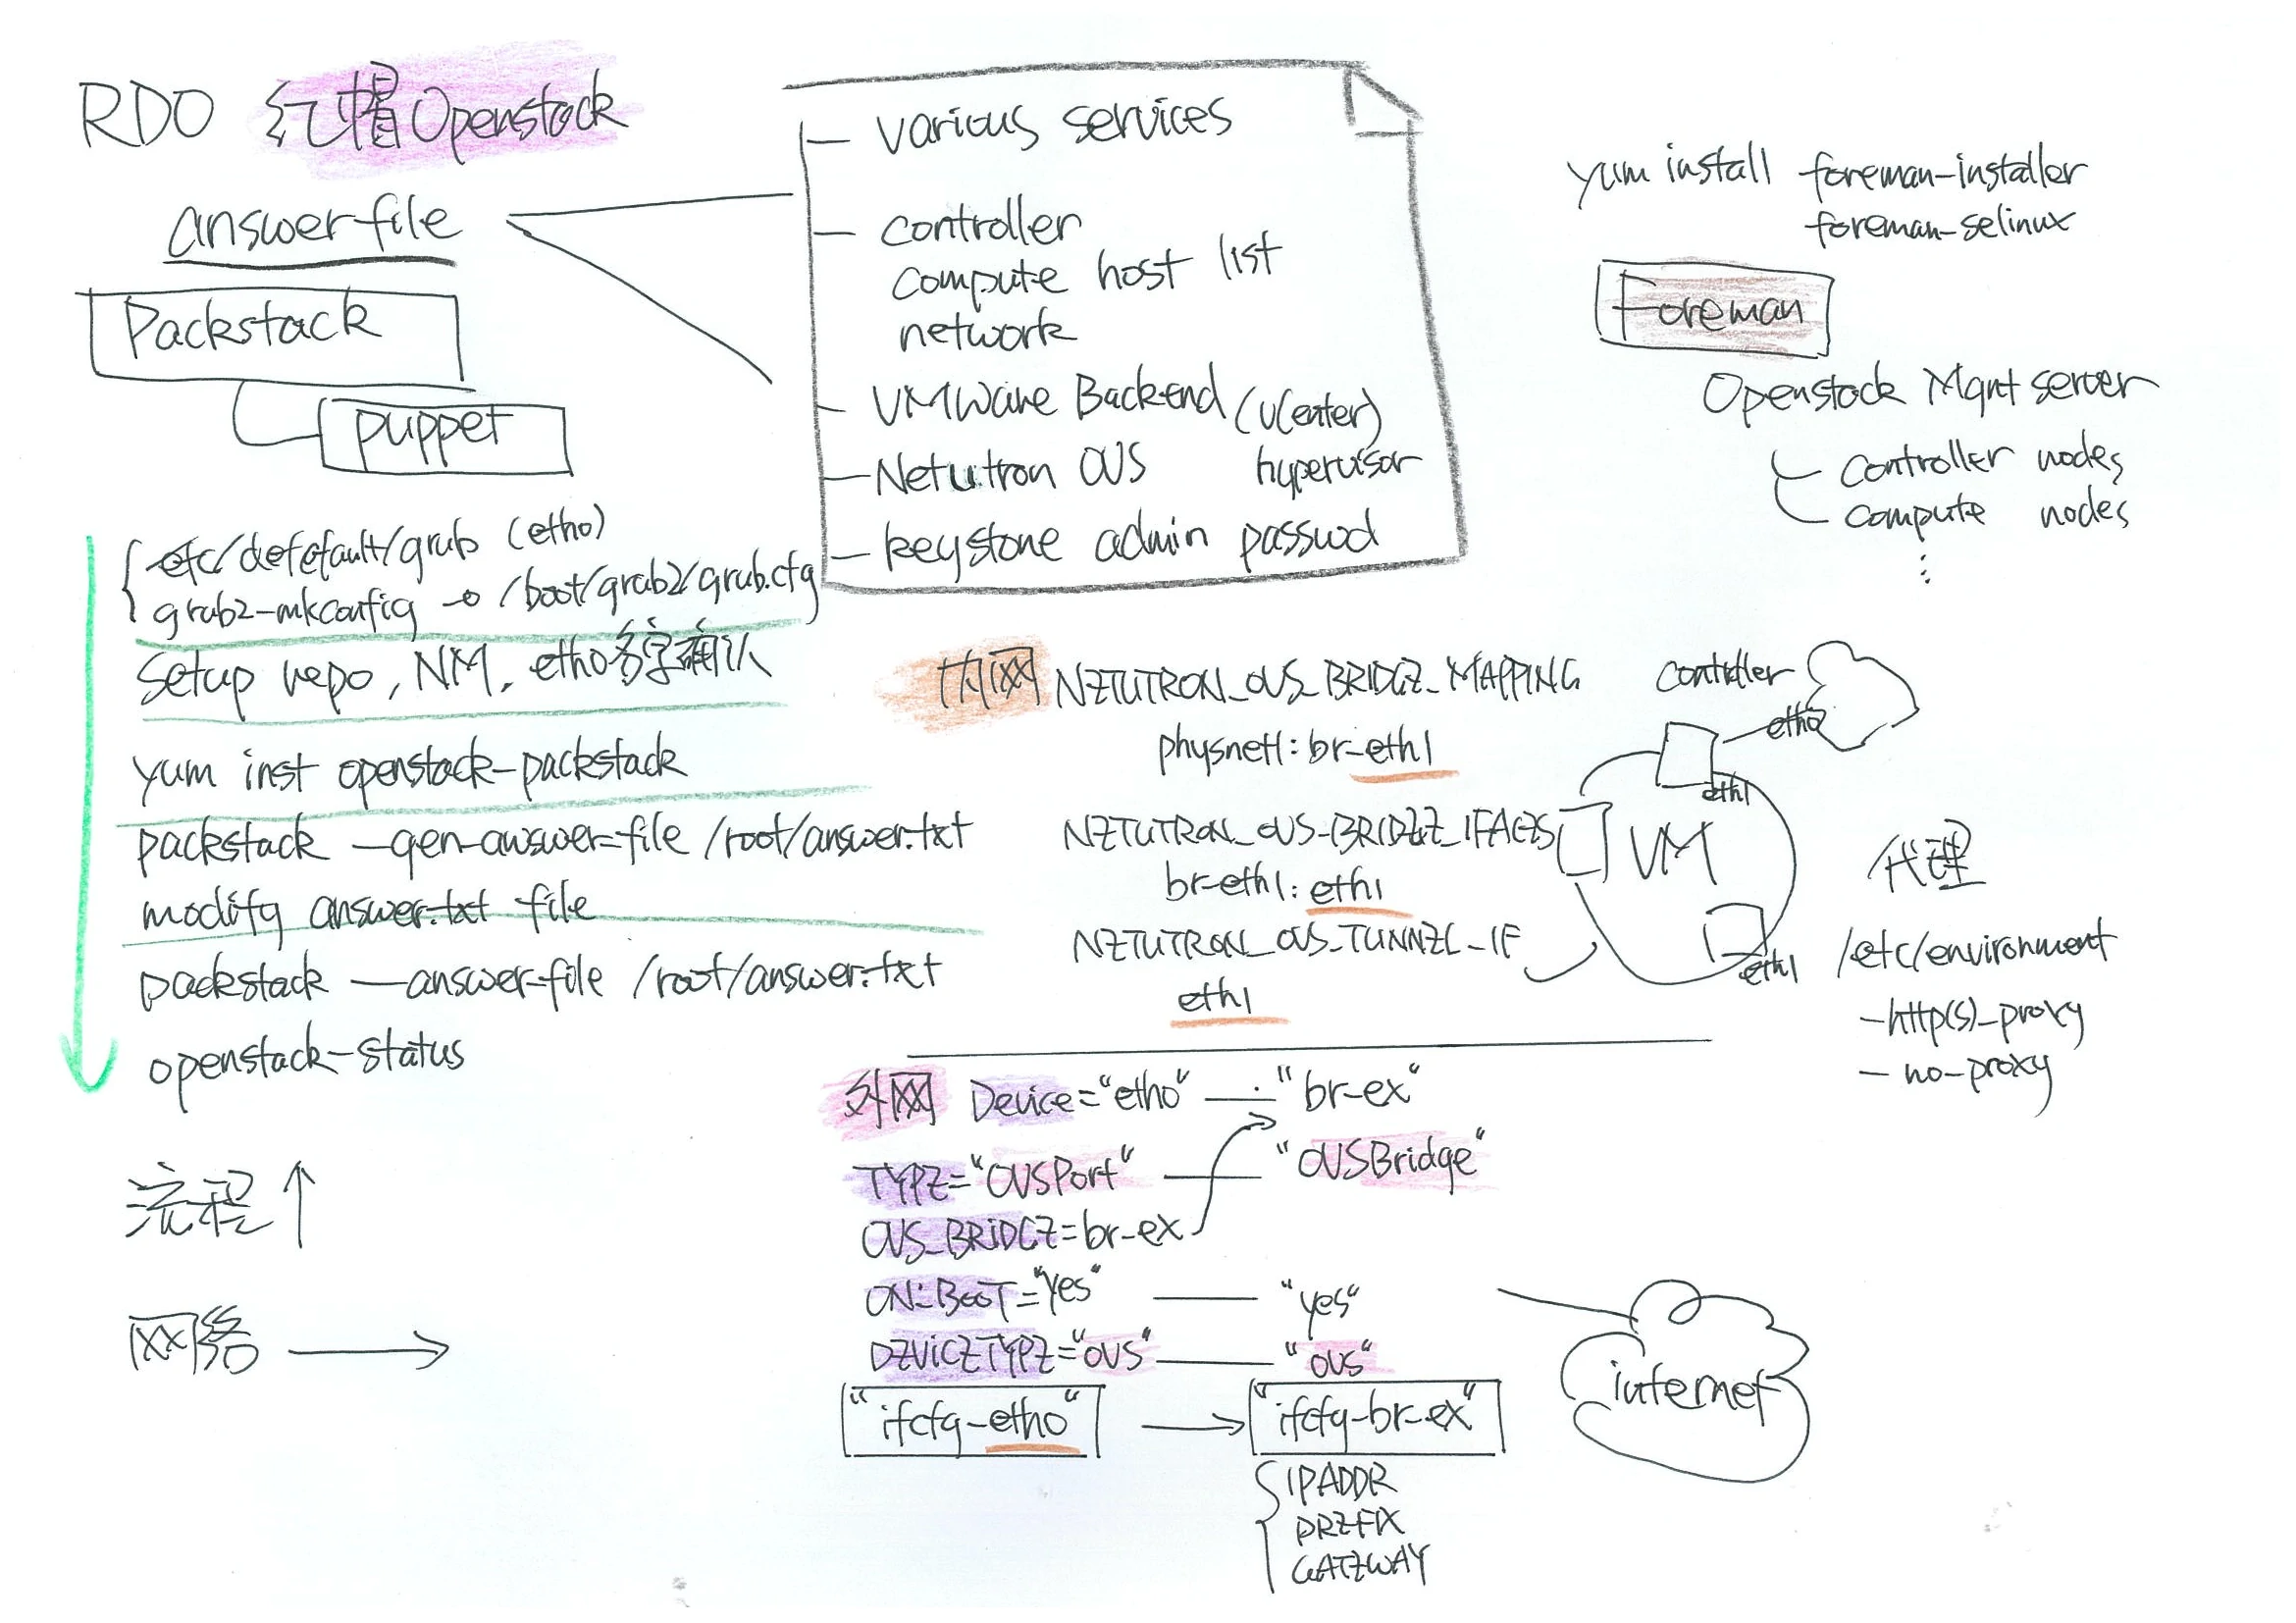 RDO 红帽Openstack
answer-file
Packstack
puppet
various services
controller
compute host list
network
VMWare Backend (vCenter)
hypervisor
Netutron OVS
keystone admin passwd
yum install foreman-installer
foreman-selinux
Foreman
Openstack Mgnt server
controller nodes
compute nodes
etc/defefault/grub (eth0)
grub2-mkconfig → /boot/grub2/grub.cfg
setup repo, NM, eth0名字确认
yum inst openstack-packstack
packstack —gen-answer-file /root/answer.txt
modify answer.txt file
packstack —answer-file /root/answer.txt
openstack-status
流程↑
网络 →
内网 NEUTUTRON_OVS_BRIDGE_MAPPING
physnet1: br-eth1
NEUTUTRON_OVS-BRIDGE_IFACES
br-eth1: eth1
NEUTUTRON_OVS_TUNNEL_IF
eth1
controller
eth0
eth1
VM
eth1
代理
/etc/environment
-http(s)_proxy
- no-proxy
外网 Device="eth0" — "br-ex"
TYPE="OVSPort" — "OVSBridge"
OVS_BRIDGE=br-ex
ON-BOOT="yes" — "yes"
DEVICETYPE="ovs" — "ovs"
"ifcfg-eth0" → "ifcfg-br-ex"
IPADDR
PREFIX
GATEWAY
internet